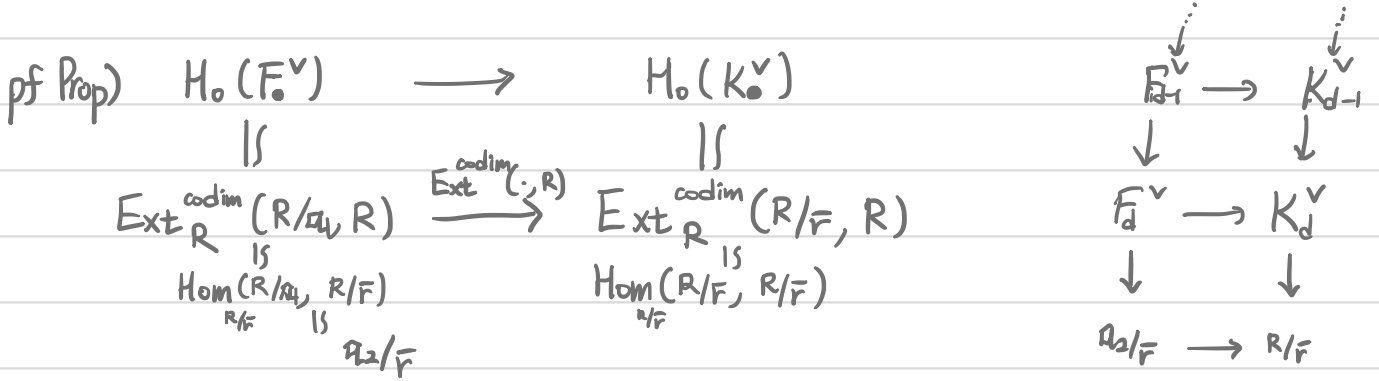 pf Prop) H₀(F•^∨) ⟶ H₀(K•^∨)
≅ ≅
Ext_R^codim(R/𝔞₁, R) ⟶^{Ext^codim(·, R)} Ext_R^codim(R/r̄, R)
≅ ≅
Hom_{R/r̄}(R/𝔞₁, R/r̄) Hom_{R/r̄}(R/r̄, R/r̄)
≅
𝔞₂/r̄
⋮ ⋮
↓ ↓
F_{d-1}^∨ ⟶ K_{d-1}^∨
↓ ↓
F_d^∨ ⟶ K_d^∨
↓ ↓
𝔞₂/r̄ ⟶ R/r̄